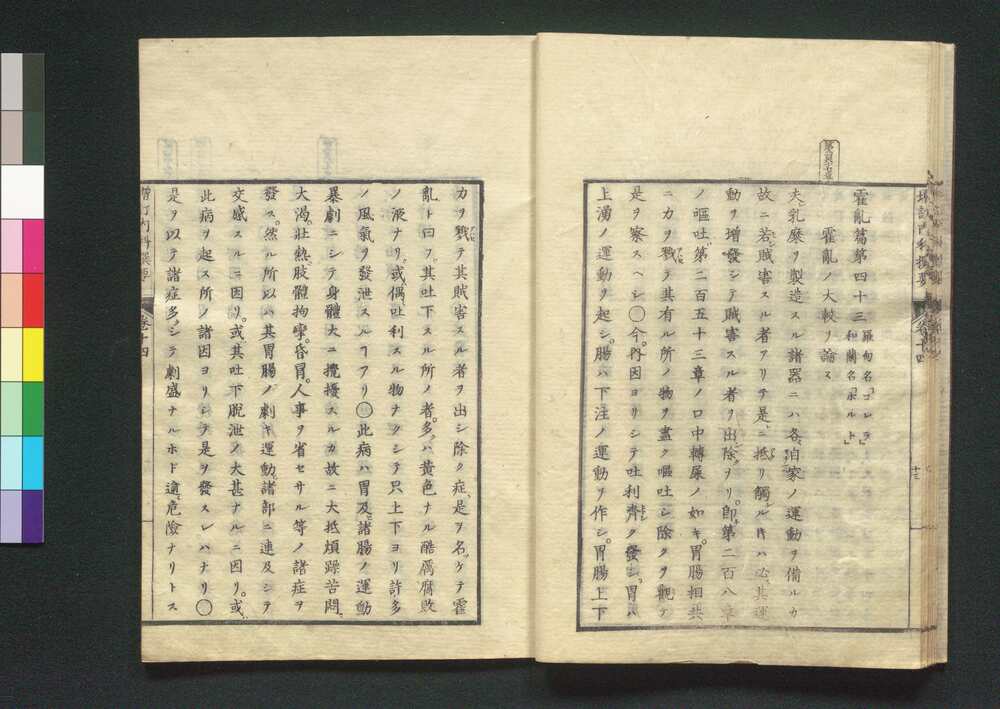 霍亂篇第四十三 羅甸名「コレラ」
和蘭名「ボルト」
霍亂ノ大較ヲ論ス
夫乳糜ヲ製造スル諸器ニハ各自家ノ運動ヲ備ルカ
故ニ若賊害スル者アリテ是ニ抵リ觸ル𪜈ハ必其運
動ヲ増發シテ賊害スル者ヲ出除ヲリ。即第二百八章
ノ嘔吐。第二百五十三章ノ口中轉屎ノ如キ。胃腸相共
ニカヲ戮テ其有ル所ノ物ヲ盡ク嘔吐シ除クヲ觀テ
是ヲ察スヘシ○今内因ヨリシテ吐利齊ク發シ。胃ハ
上湧ノ運動ヲ起シ。腸ハ下注ノ運動ヲ作シ。胃腸上下
力ヲ戮テ其賊害スル者ヲ出シ除ク症是ヲ名ケテ霍
亂ト曰フ。其吐下スル所ノ者。多ハ黄色ナル酷厲腐敗
ノ液ナリ。或偶吐利スル物ナクシテ只上下ヨリ許多
ノ風氣ヲ發泄スルヿアリ○此病ハ胃及諸腸ノ運動
暴劇ニシテ身體大ニ攪擾スルカ故ニ大抵煩躁苦悶。
大渴壯熱。肢體拘攣。昏冒。人事ヲ省セサル等ノ諸症ヲ
發ス。然ル所以ハ其胃腸ノ劇キ運動。諸部ニ連及シテ
交感スルニ因リ。或其吐下脱泄ノ大甚ナルニ因リ。或
此病ヲ起ス所ノ諸因ヨリシテ是ヲ發スレハナリ○
是ヲ以テ諸症多シテ劇盛ナルホド適危險ナリトス
増訂内科撰要
卷十四